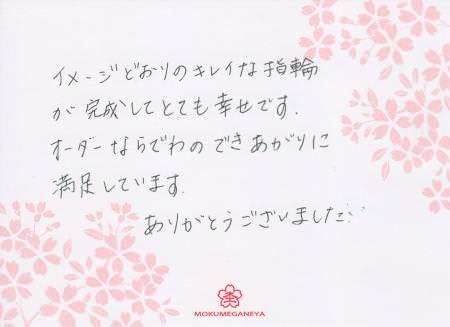 イメージどおりのキレイな指輪
が完成してとても幸せです.
オーダーならでわのできあがりに
満足しています.
ありがとうございました
MOKUMEGANEYA